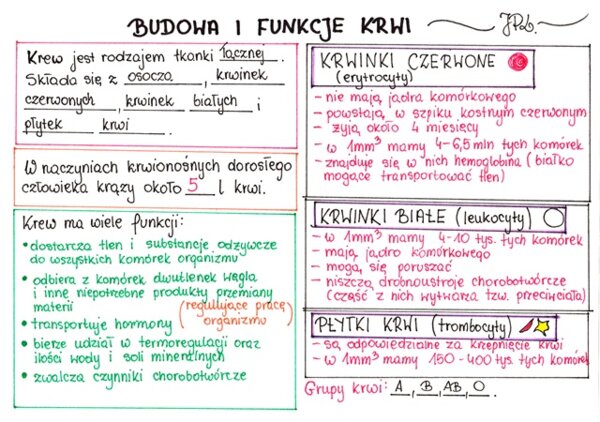 BUDOWA I FUNKCJE KRWI
JPL.
Krew jest rodzajem tkanki łącznej.
Składa się z osocza, krwinek
czerwonych, krwinek białych i
płytek krwi.
W naczyniach krwionośnych dorosłego
człowieka krąży około 5 l krwi.
Krew ma wiele funkcji:
• dostarcza tlen i substancje odżywcze
do wszystkich komórek organizmu
• odbiera z komórek dwutlenek węgla
i inne niepotrzebne produkty przemiany
materii
• transportuje hormony (regulujące pracę
organizmu)
• bierze udział w termoregulacji oraz
ilości wody i soli mineralnych
• zwalcza czynniki chorobotwórcze
KRWINKI CZERWONE
(erytrocyty)
- nie mają jądra komórkowego
- powstają w szpiku kostnym czerwonym
- żyją około 4 miesięcy
- w 1mm³ mamy 4-6,5 mln tych komórek
- znajduje się w nich hemoglobina (białko
mogące transportować tlen)
KRWINKI BIAŁE (leukocyty)
- w 1mm³ mamy 4-10 tys. tych komórek
- mają jądro komórkowe
- mogą się poruszać
- niszczą drobnoustroje chorobotwórcze
(część z nich wytwarza tzw. przeciwciała)
PŁYTKI KRWI (trombocyty)
- są odpowiedzialne za krzepnięcie krwi
- w 1mm³ mamy 150-400 tys. tych komórek
Grupy krwi: A, B, AB, O.